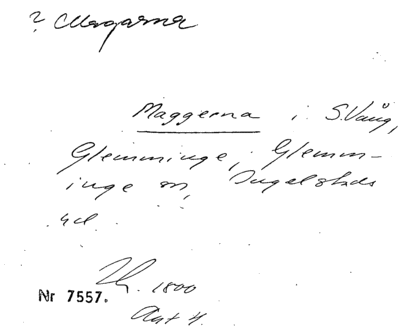 ? Magarna
Maggerna i S. Vång,
Glemminge, Glemm-
inge sn, Ingelstads
hd.
1800
Nr 7557.
Akt 4.